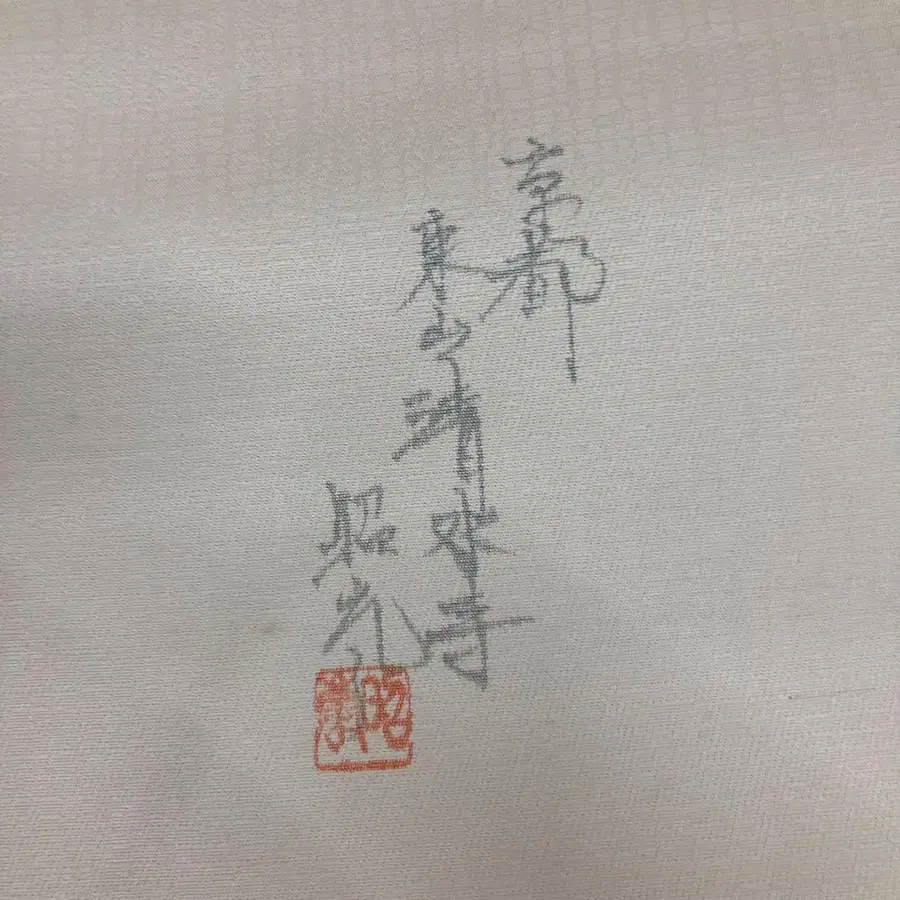 京都
東山清水寺
昭